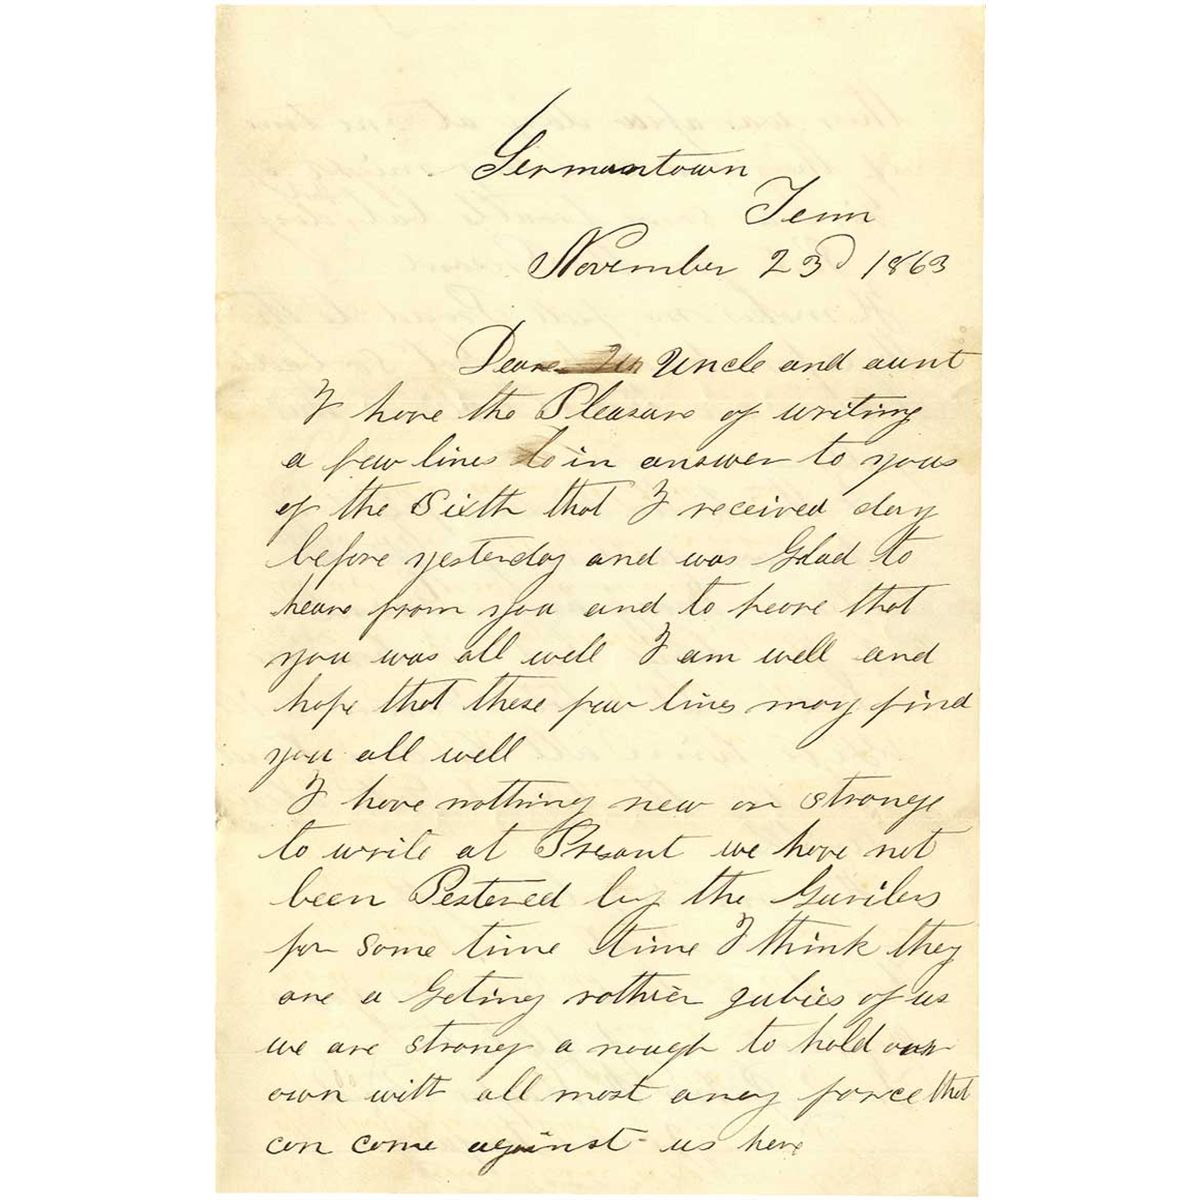 Germantown
Tenn
November 23d 1863
Deare Uncle and aunt
I have the Pleasure of writing
a few lines to in answer to yous
of the Sixth that I received day
before yesterday and was Glad to
heare from you and to heare that
you was all well I am well and
hope that these few lines may find
you all well
I have nothing new or strange
to write at Present we have not
been Pestered by the Gurilers
for some time time I think they
are a Geting rather jubies of us
we are strong a nough to hold our
own with all most aney force that
can come against us here